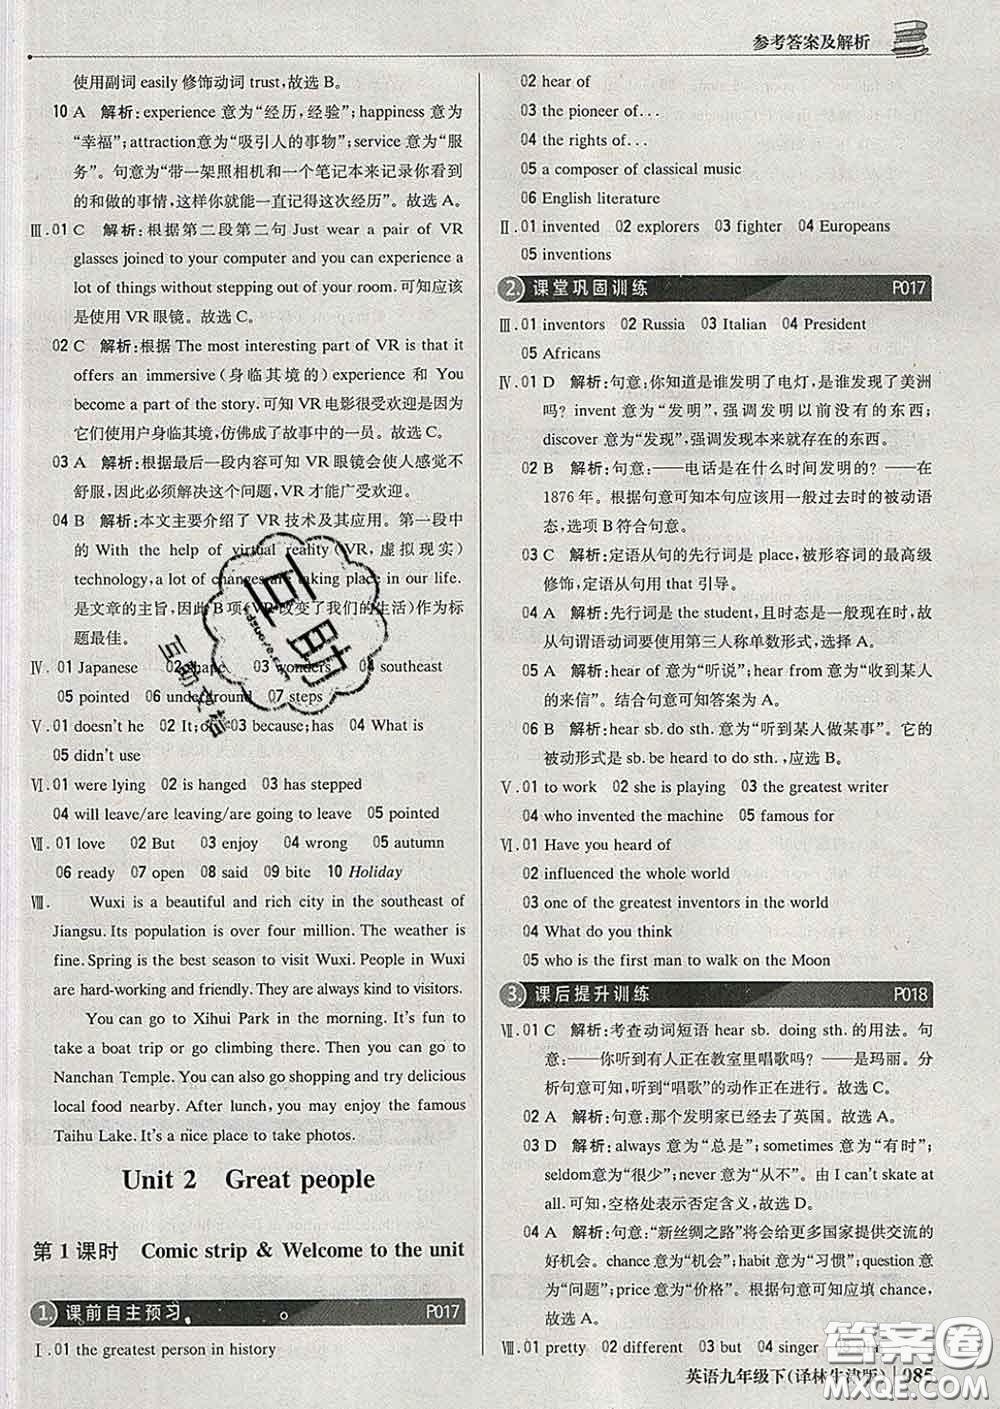 参考答案及解析
使用副词 easily 修饰动词 trust,故选 B。
10 A 解析:experience 意为“经历,经验”;happiness 意为
“幸福”;attraction意为“吸引人的事物”;service 意为“服
务”。句意为“带一架照相机和一个笔记本来记录你看到
的和做的事情,这样你就能一直记得这次经历”。故选 A。
Ⅲ. 01 C 解析:根据第二段第二句 Just wear a pair of VR
glasses joined to your computer and you can experience a
lot of things without stepping out of your room. 可知应该
是使用 VR 眼镜。故选 C。
02 C 解析:根据 The most interesting part of VR is that it
offers an immersive (身临其境的) experience 和 You
become a part of the story. 可知 VR 电影很受欢迎是因为
它们使用户身临其境,仿佛成了故事中的一员。故选 C。
03 A 解析:根据最后一段内容可知 VR 眼镜会使人感觉不
舒服,因此必须解决这个问题,VR 才能广受欢迎。
04 B 解析:本文主要介绍了 VR 技术及其应用。第一段中
的 With the help of virtual reality (VR, 虚拟现实)
technology, a lot of changes are taking place in our life.
是文章的主旨,因此 B 项(VR 改变了我们的生活)作为标
题最佳。
Ⅳ. 01 Japanese 02 shape 03 wonders 04 southeast
05 pointed 06 underground 07 steps
Ⅴ. 01 doesn't he 02 It; of 03 because; has 04 What is
05 didn't use
Ⅵ. 01 were lying 02 is hanged 03 has stepped
04 will leave/are leaving/are going to leave 05 pointed
Ⅶ. 01 love 02 But 03 enjoy 04 wrong 05 autumn
06 ready 07 open 08 said 09 bite 10 Holiday
Ⅷ. Wuxi is a beautiful and rich city in the southeast of
Jiangsu. Its population is over four million. The weather is
fine. Spring is the best season to visit Wuxi. People in Wuxi
are hard-working and friendly. They are always kind to visitors.
You can go to Xihui Park in the morning. It's fun to
take a boat trip or go climbing there. Then you can go to
Nanchan Temple. You can also go shopping and try delicious
local food nearby. After lunch, you may enjoy the famous
Taihu Lake. It's a nice place to take photos.
Unit 2 Great people
第 1 课时 Comic strip & Welcome to the unit
1. 课前自主预习 P017
Ⅰ. 01 the greatest person in history
02 hear of
03 the pioneer of...
04 the rights of...
05 a composer of classical music
06 English literature
Ⅱ. 01 invented 02 explorers 03 fighter 04 Europeans
05 inventions
2. 课堂巩固训练 P017
Ⅲ. 01 inventors 02 Russia 03 Italian 04 President
05 Africans
Ⅳ. 01 D 解析:句意:你知道是谁发明了电灯,是谁发现了美洲
吗? invent 意为“发明”,强调发明以前没有的东西;
discover 意为“发现”,强调发现本来就存在的东西。
02 B 解析:句意:——电话是在什么时间发明的? ——在
1876 年。根据句意可知本句应该用一般过去时的被动语
态,选项 B 符合句意。
03 C 解析:定语从句的先行词是 place,被形容词的最高级
修饰,定语从句用 that 引导。
04 A 解析:先行词是 the student,且时态是一般现在时,故
从句谓语动词要使用第三人称单数形式,选择 A。
05 A 解析:hear of 意为“听说”;hear from 意为“收到某人
的来信”。结合句意可知答案为 A。
06 B 解析:hear sb. do sth. 意为“听到某人做某事”。它的
被动形式是 sb. be heard to do sth.,应选 B。
Ⅴ. 01 to work 02 she is playing 03 the greatest writer
04 who invented the machine 05 famous for
Ⅵ. 01 Have you heard of
02 influenced the whole world
03 one of the greatest inventors in the world
04 What do you think
05 who is the first man to walk on the Moon
3. 课后提升训练 P018
Ⅶ. 01 C 解析:考查动词短语 hear sb. doing sth. 的用法。句
意:——你听到有人正在教室里唱歌吗? ——是玛丽。分
析句意可知,听到“唱歌”的动作正在进行。故选 C。
02 A 解析:句意:那个发明家已经去了英国。故选 A。
03 D 解析:always 意为“总是”;sometimes 意为“有时”;
seldom意为“很少”;never 意为“从不”。由 I can't skate at
all. 可知,空格处表示否定含义,故选 D。
04 A 解析:句意:“新丝绸之路”将会给更多国家提供交流的
好机会。chance 意为“机会”;habit 意为“习惯”;question
意为“问题”;price 意为“价格”。根据句意可知应填 chance,
故选 A。
Ⅷ. 01 pretty 02 different 03 but 04 singer
英语九年级下(译林牛津版) 085
互助
互助文档
答案圈
MXQE.COM